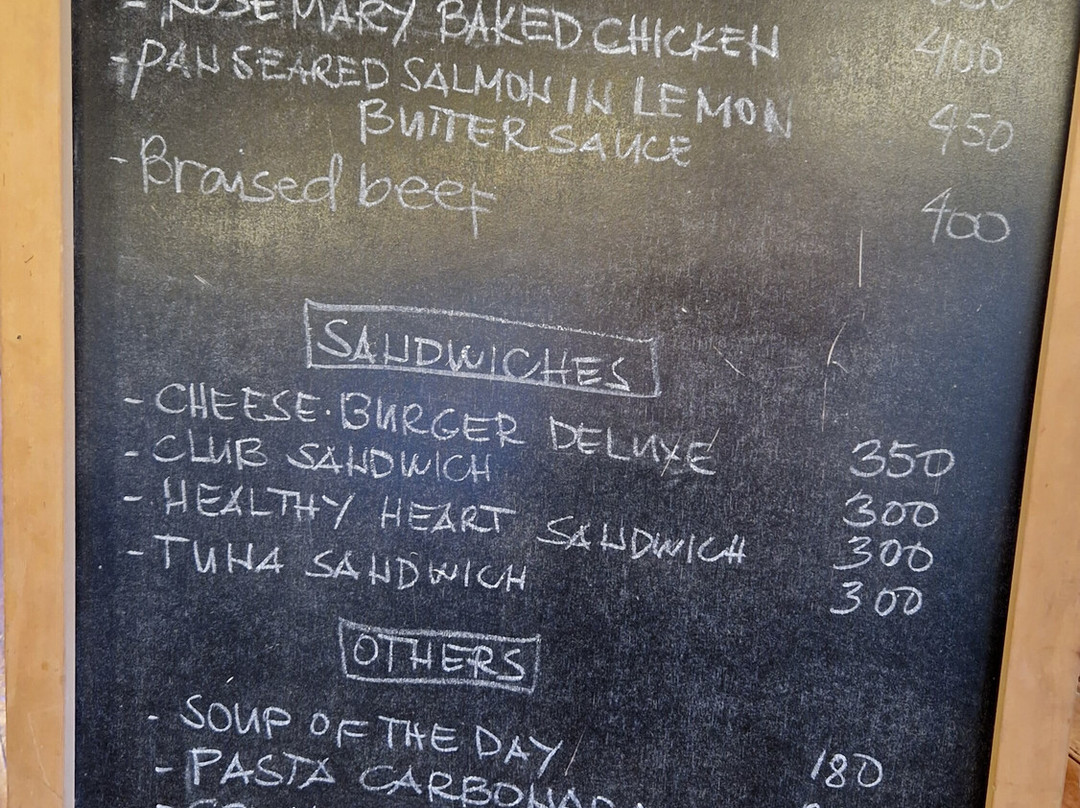 - ROSEMARY BAKED CHICKEN 400
- PAN SEARED SALMON IN LEMON
BUTTER SAUCE 450
- Braised beef 400
SANDWICHES
- CHEESE.BURGER DELUXE 350
- CLUB SANDWICH 300
- HEALTHY HEART SANDWICH 300
- TUNA SANDWICH 300
OTHERS
- SOUP OF THE DAY 180
- PASTA CARBONARA